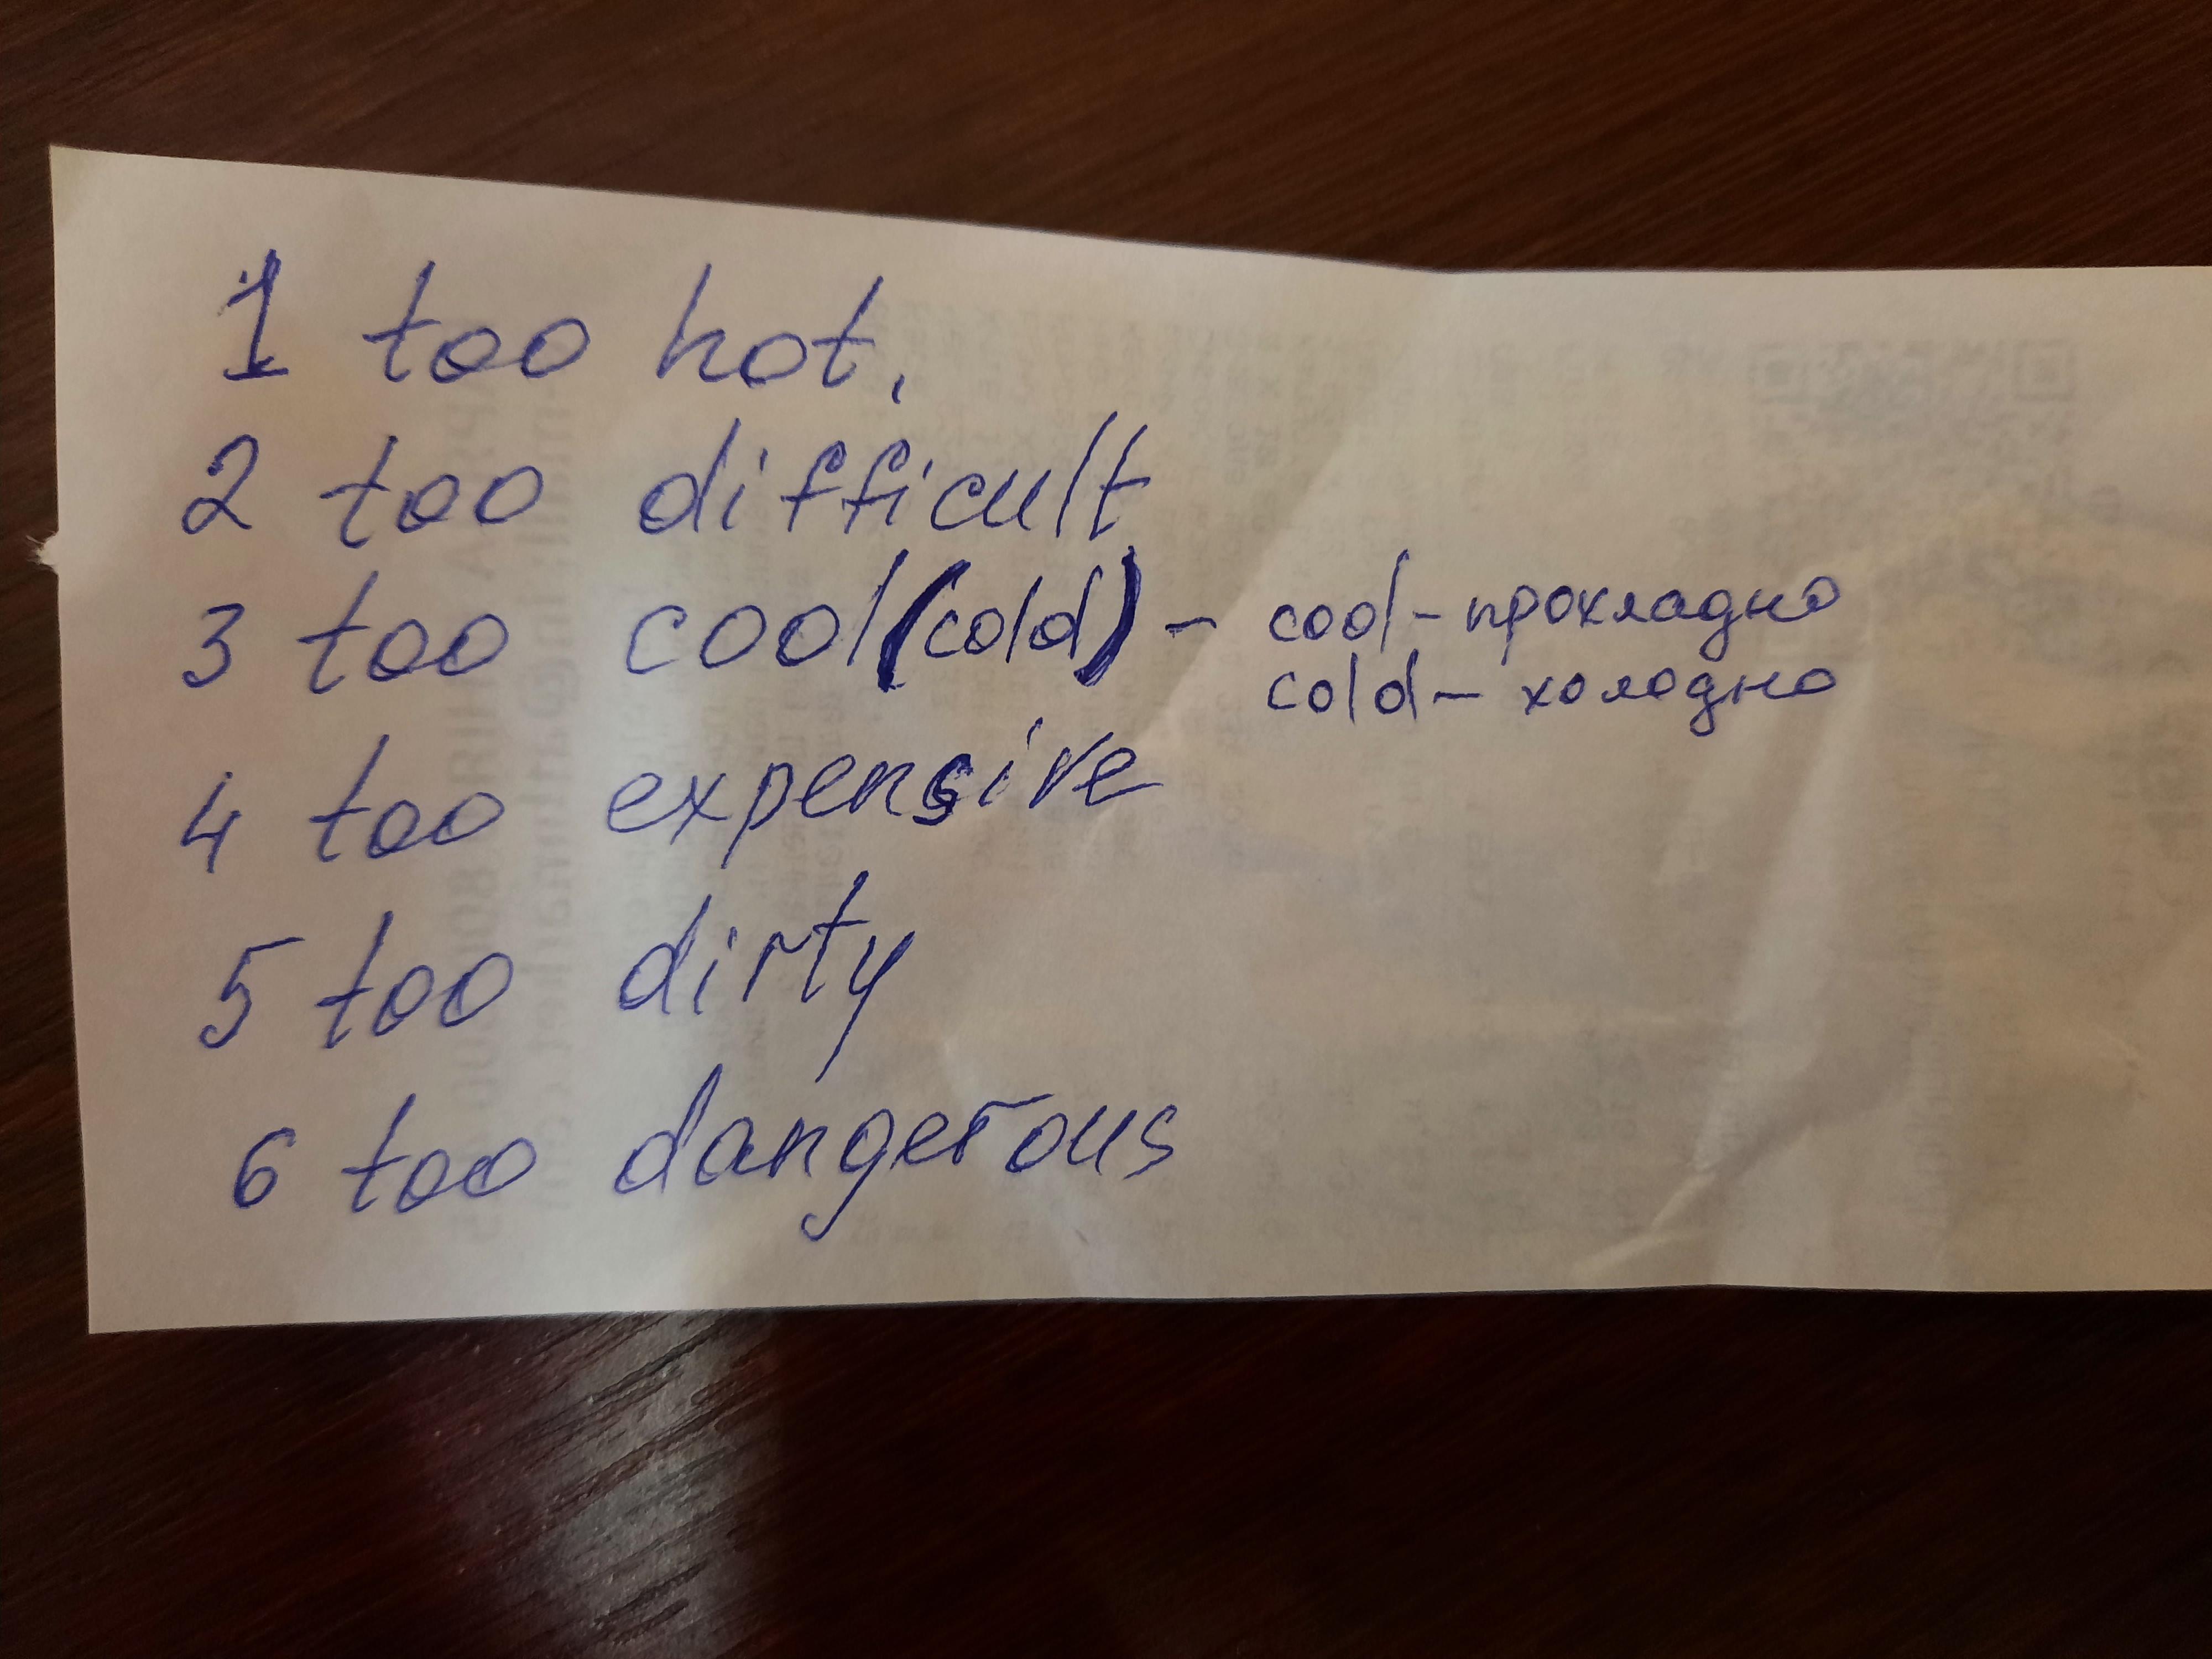 1 too hot.
2 too difficult
3 too cool (cold) - cool - прохладно
cold - холодно
4 too expensive
5 too dirty
6 too dangerous